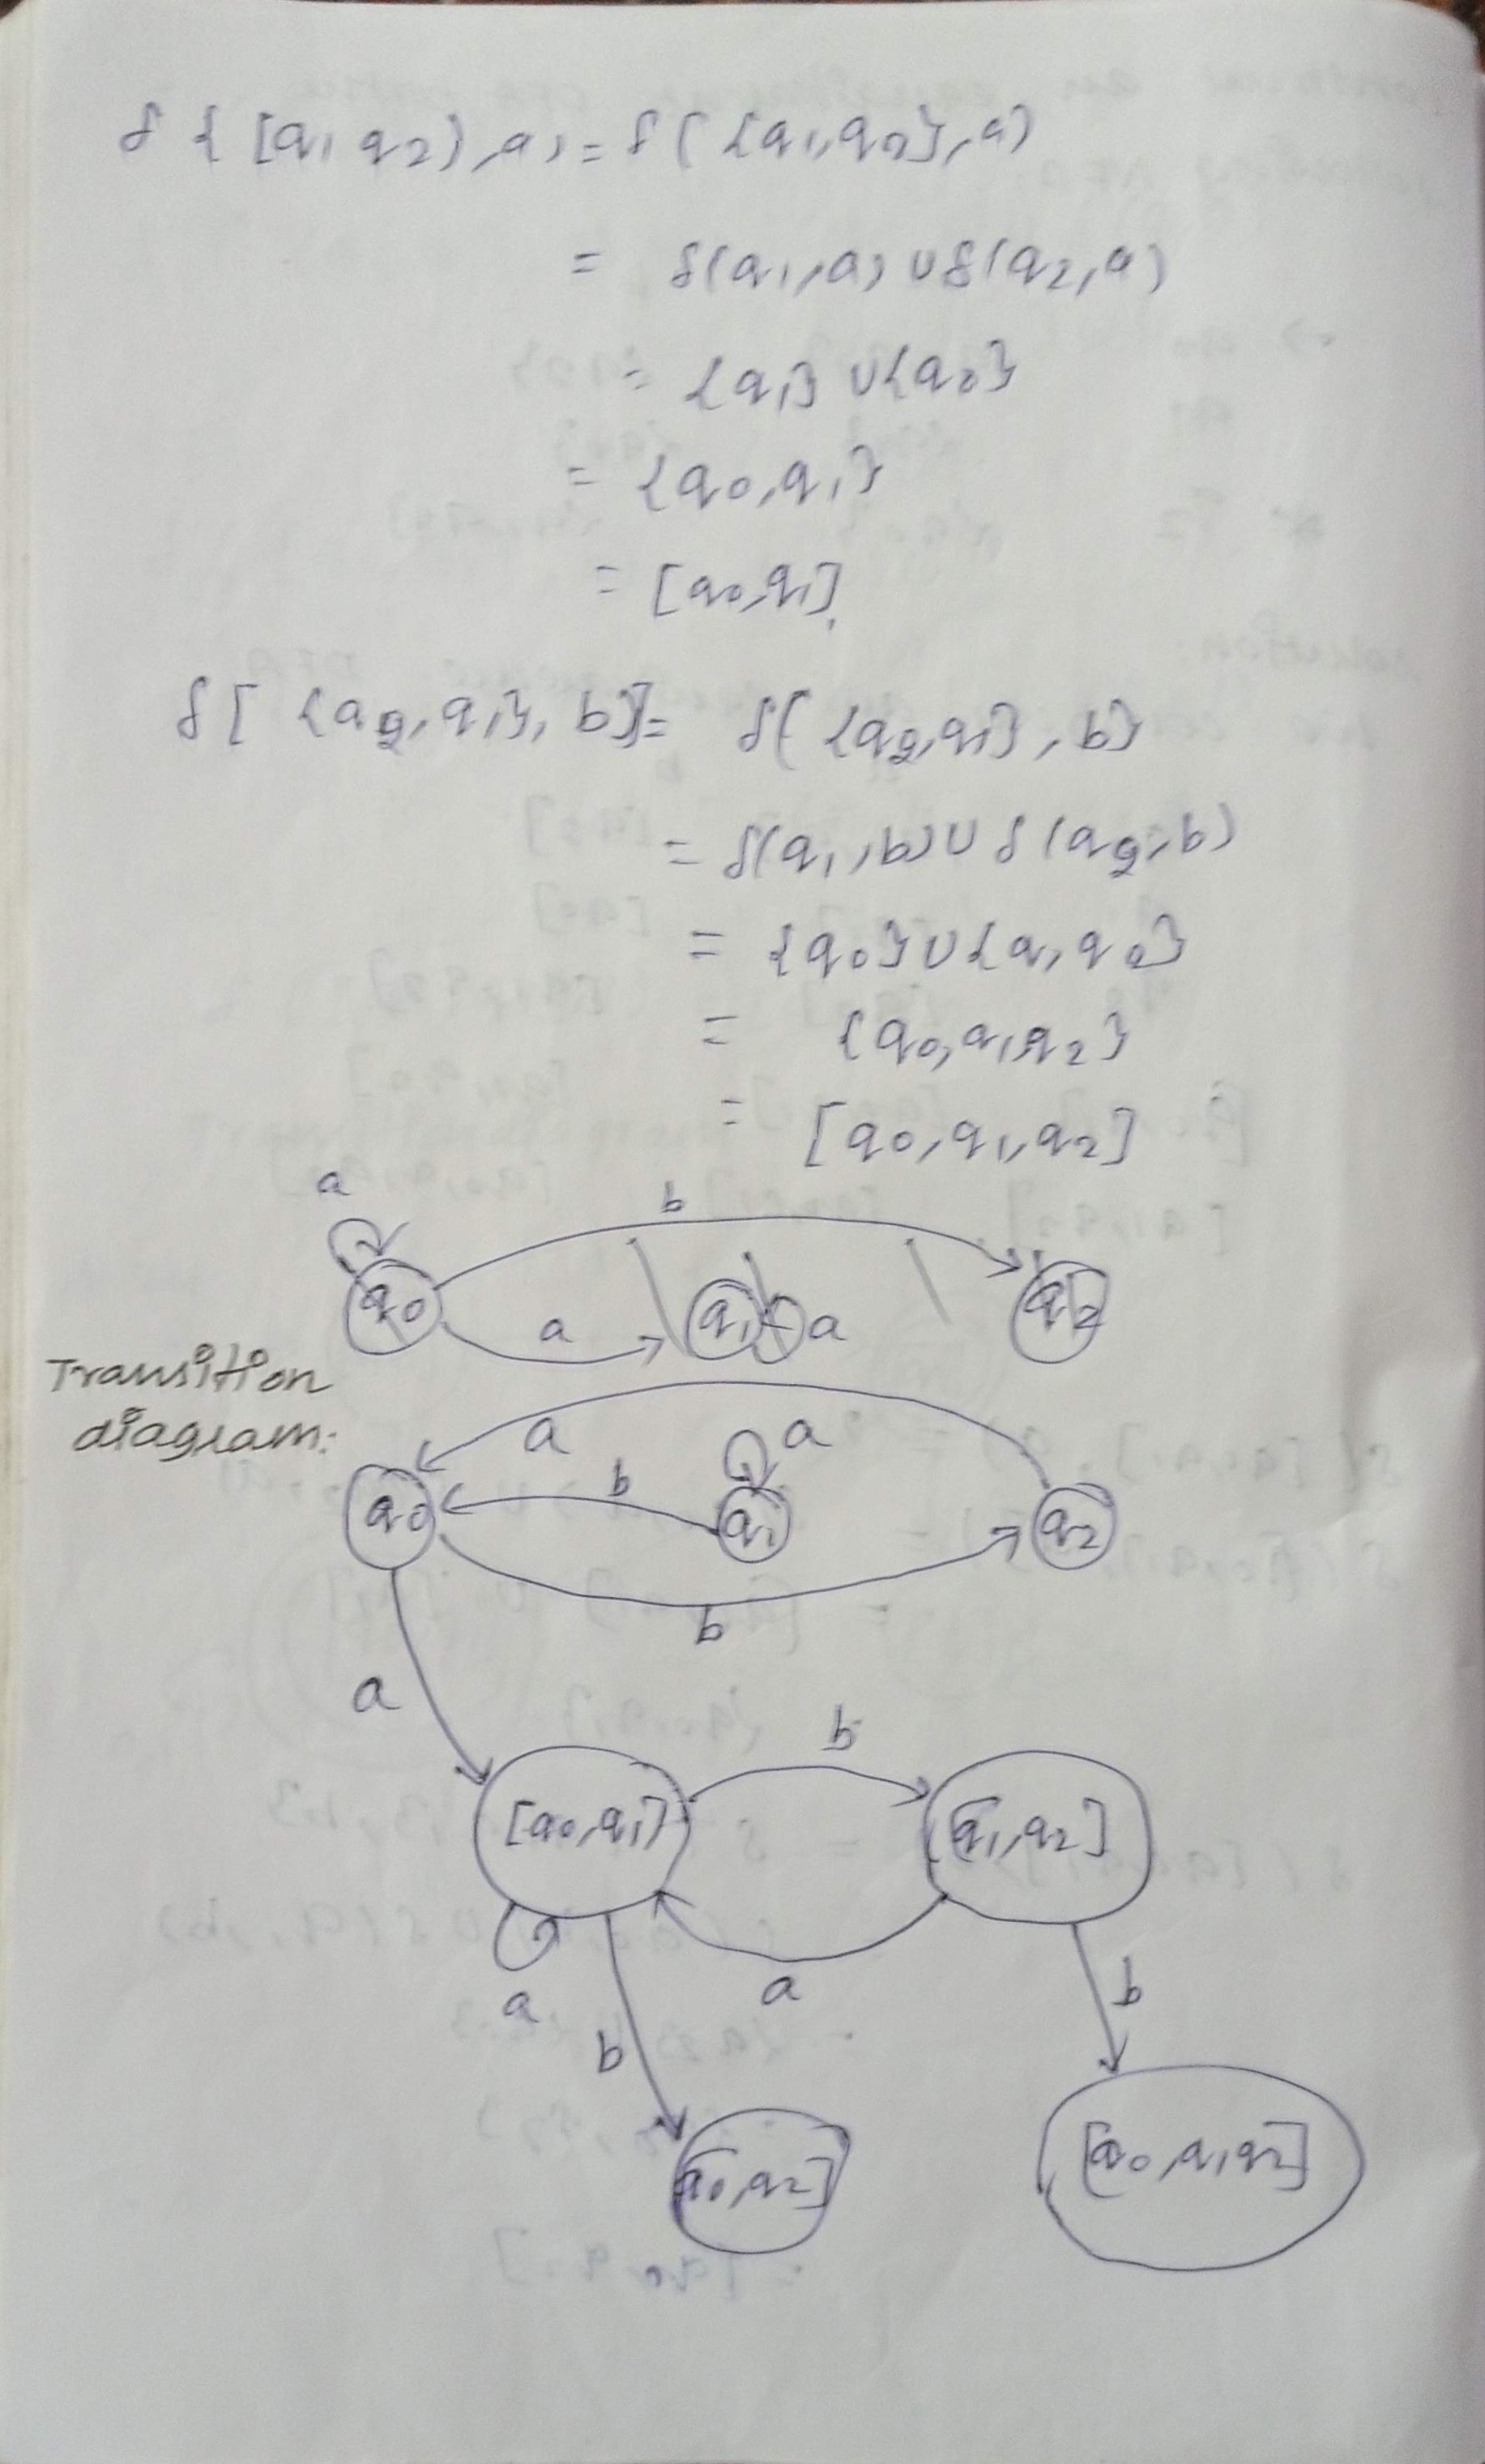 δ { [q1 q2), a) = δ( {q1, q2}, a)
= δ(q1, a) ∪ δ(q2, a)
= {q1} ∪ {q0}
= {q0, q1}
= [q0, q1].
δ[ {q2, q1}, b]] = δ( {q2, q1}, b}
= δ(q1, b) ∪ δ(q2, b)
= {q0} ∪ {q1 q2}
= {q0, q1, q2}
= [q0, q1, q2]
a b
q0 a q1 a q2
Transition
diagram:
a a
b
q0 q1 q2
b
a
b
[q0, q1] [q1, q2]
a a
b b
[q0, q2] [q0, q1, q2]